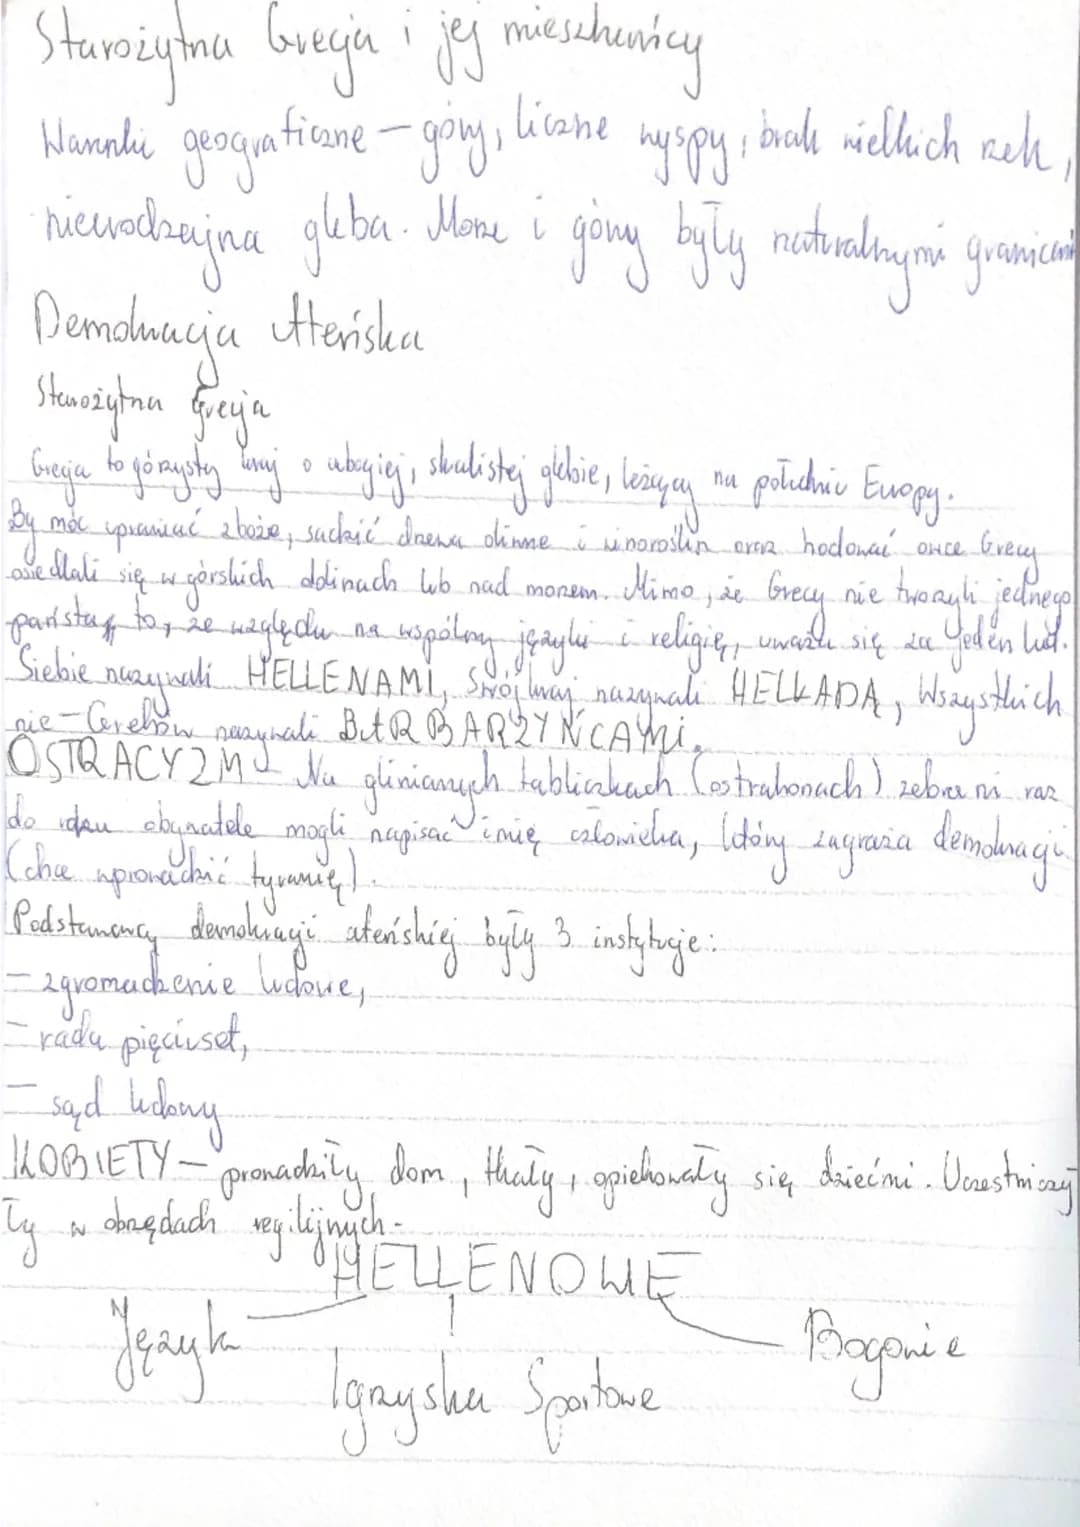 Starożytna Grecja i jej mieszkańcy
Warunki geograficzne – góry, liczne wyspy, brak wielkich rzek,
nieurodzajna gleba. Morze i góry były naturalnymi granicami
Demokracja Ateńska
Starożytna Grecja
Grecja to górzysty kraj o ubogiej, skalistej glebie, leżący na południu Europy.
By móc uprawiać zboże, sadzić drzewa oliwne i winoroślin oraz hodować owce Grecy
osiedlali się w górskich dolinach lub nad morzem. Mimo, że Grecy nie tworzyli jednego
państwa to, ze względu na wspólny języki i religię, uważa się za jeden lud.
Siebie nazywali HELLENAMI, swój kraj nazywali HELLADĄ, Wszystkich
nie-Greków nazywali BARBARZYŃCAMI.
OSTRACYZM – Na glinianych tabliczkach (ostrakonach) zebrani raz
do roku obywatele mogli napisać imię człowieka, który zagraża demokracji
(chce wprowadzić tyranię).
Podstawową demokracji ateńskiej były 3 instytucje:
– zgromadzenie ludowe,
– rada pięciuset,
– sąd ludowy
KOBIETY – prowadziły dom, tkały, opiekowały się dziećmi. Uczestniczy
ły w obrzędach regilijnych.
HELLENOWE
Język
Bogowie
Igrzyska Sportowe